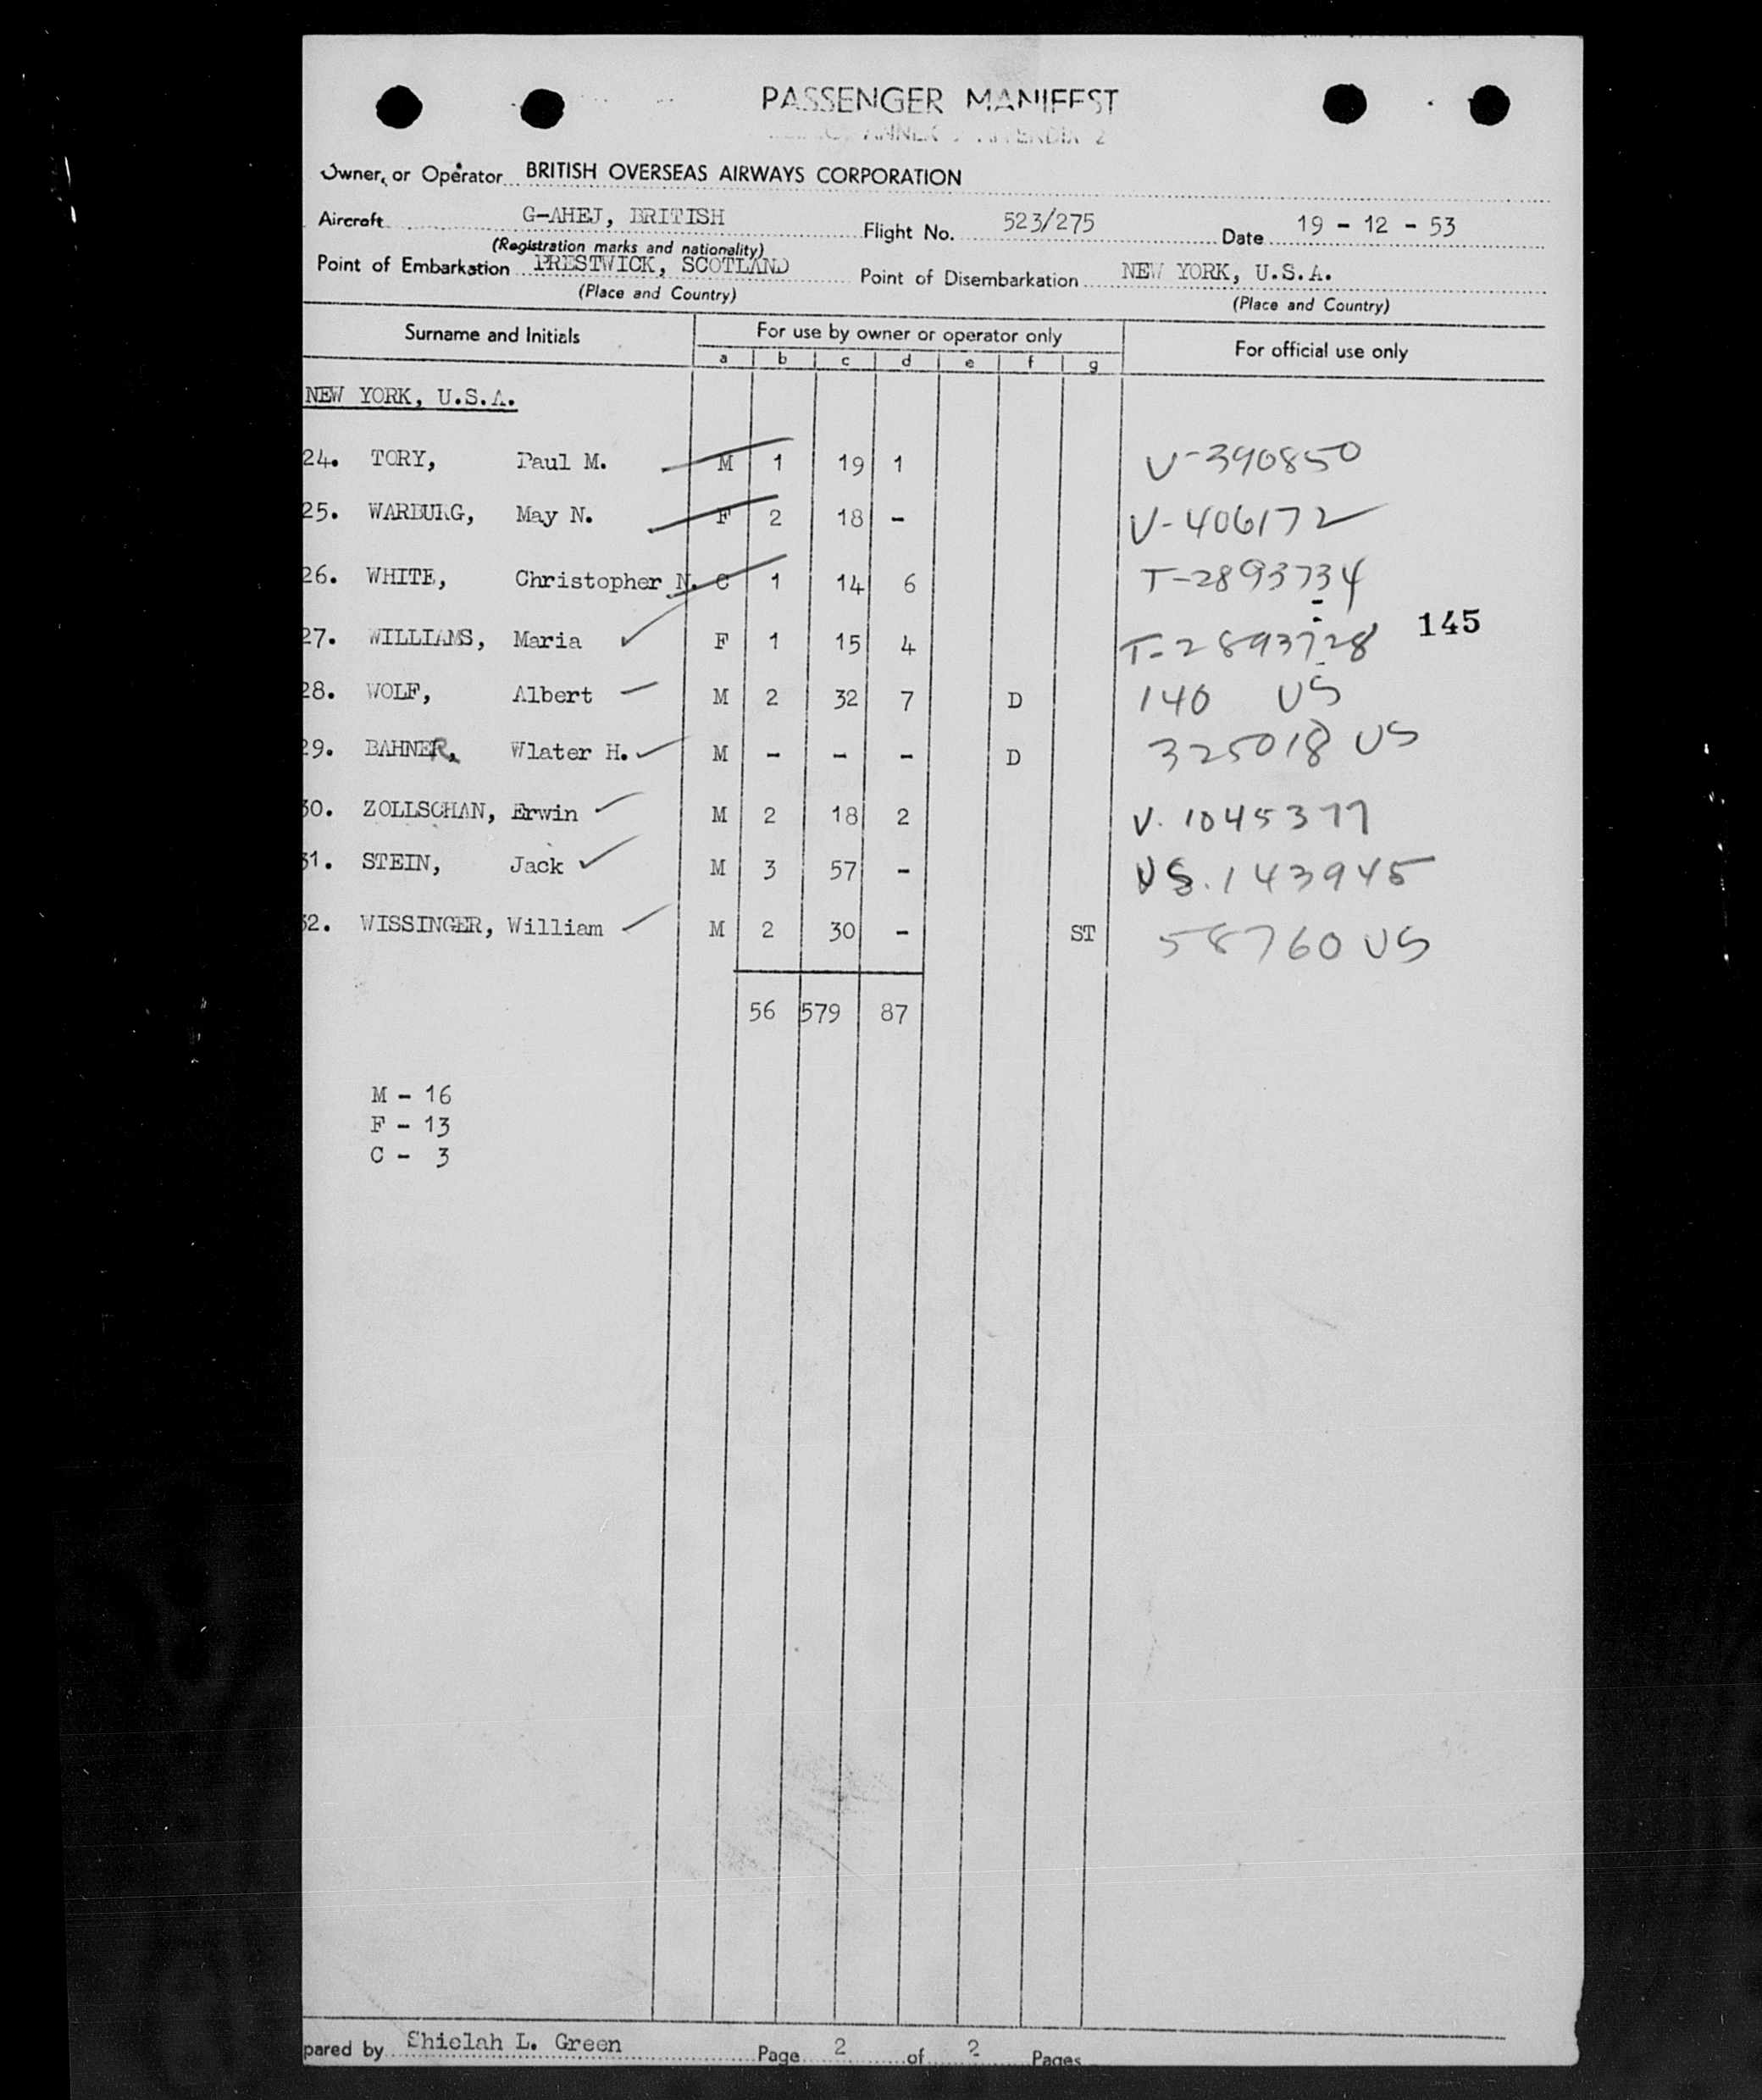 PASSENGER MANIFEST
ANNEX APPENDIX 2
Owner, or Operator BRITISH OVERSEAS AIRWAYS CORPORATION
Aircraft G-AHEJ, BRITISH Flight No. 523/275 Date 19 - 12 - 53
(Registration marks and nationality)
Point of Embarkation PRESTWICK, SCOTLAND Point of Disembarkation NEW YORK, U.S.A.
(Place and Country) (Place and Country)
Surname and Initials For use by owner or operator only For official use only
a b c d e f g
NEW YORK, U.S.A.
24. TORY, Paul M. M 1 19 1 V-390850
25. WARBURG, May N. F 2 18 - V-406172
26. WHITE, Christopher N. C 1 14 6 T-2893734
27. WILLIAMS, Maria F 1 15 4 T-2893728 145
28. WOLF, Albert M 2 32 7 D 140 US
29. BAHNER, Wlater H. M - - - D 325018 US
30. ZOLLSCHAN, Erwin M 2 18 2 V. 1045377
31. STEIN, Jack M 3 57 - VS. 143945
32. WISSINGER, William M 2 30 - ST 58760 US
56 579 87
M - 16
F - 13
C - 3
pared by Shielah L. Green Page 2 of 2 Pages